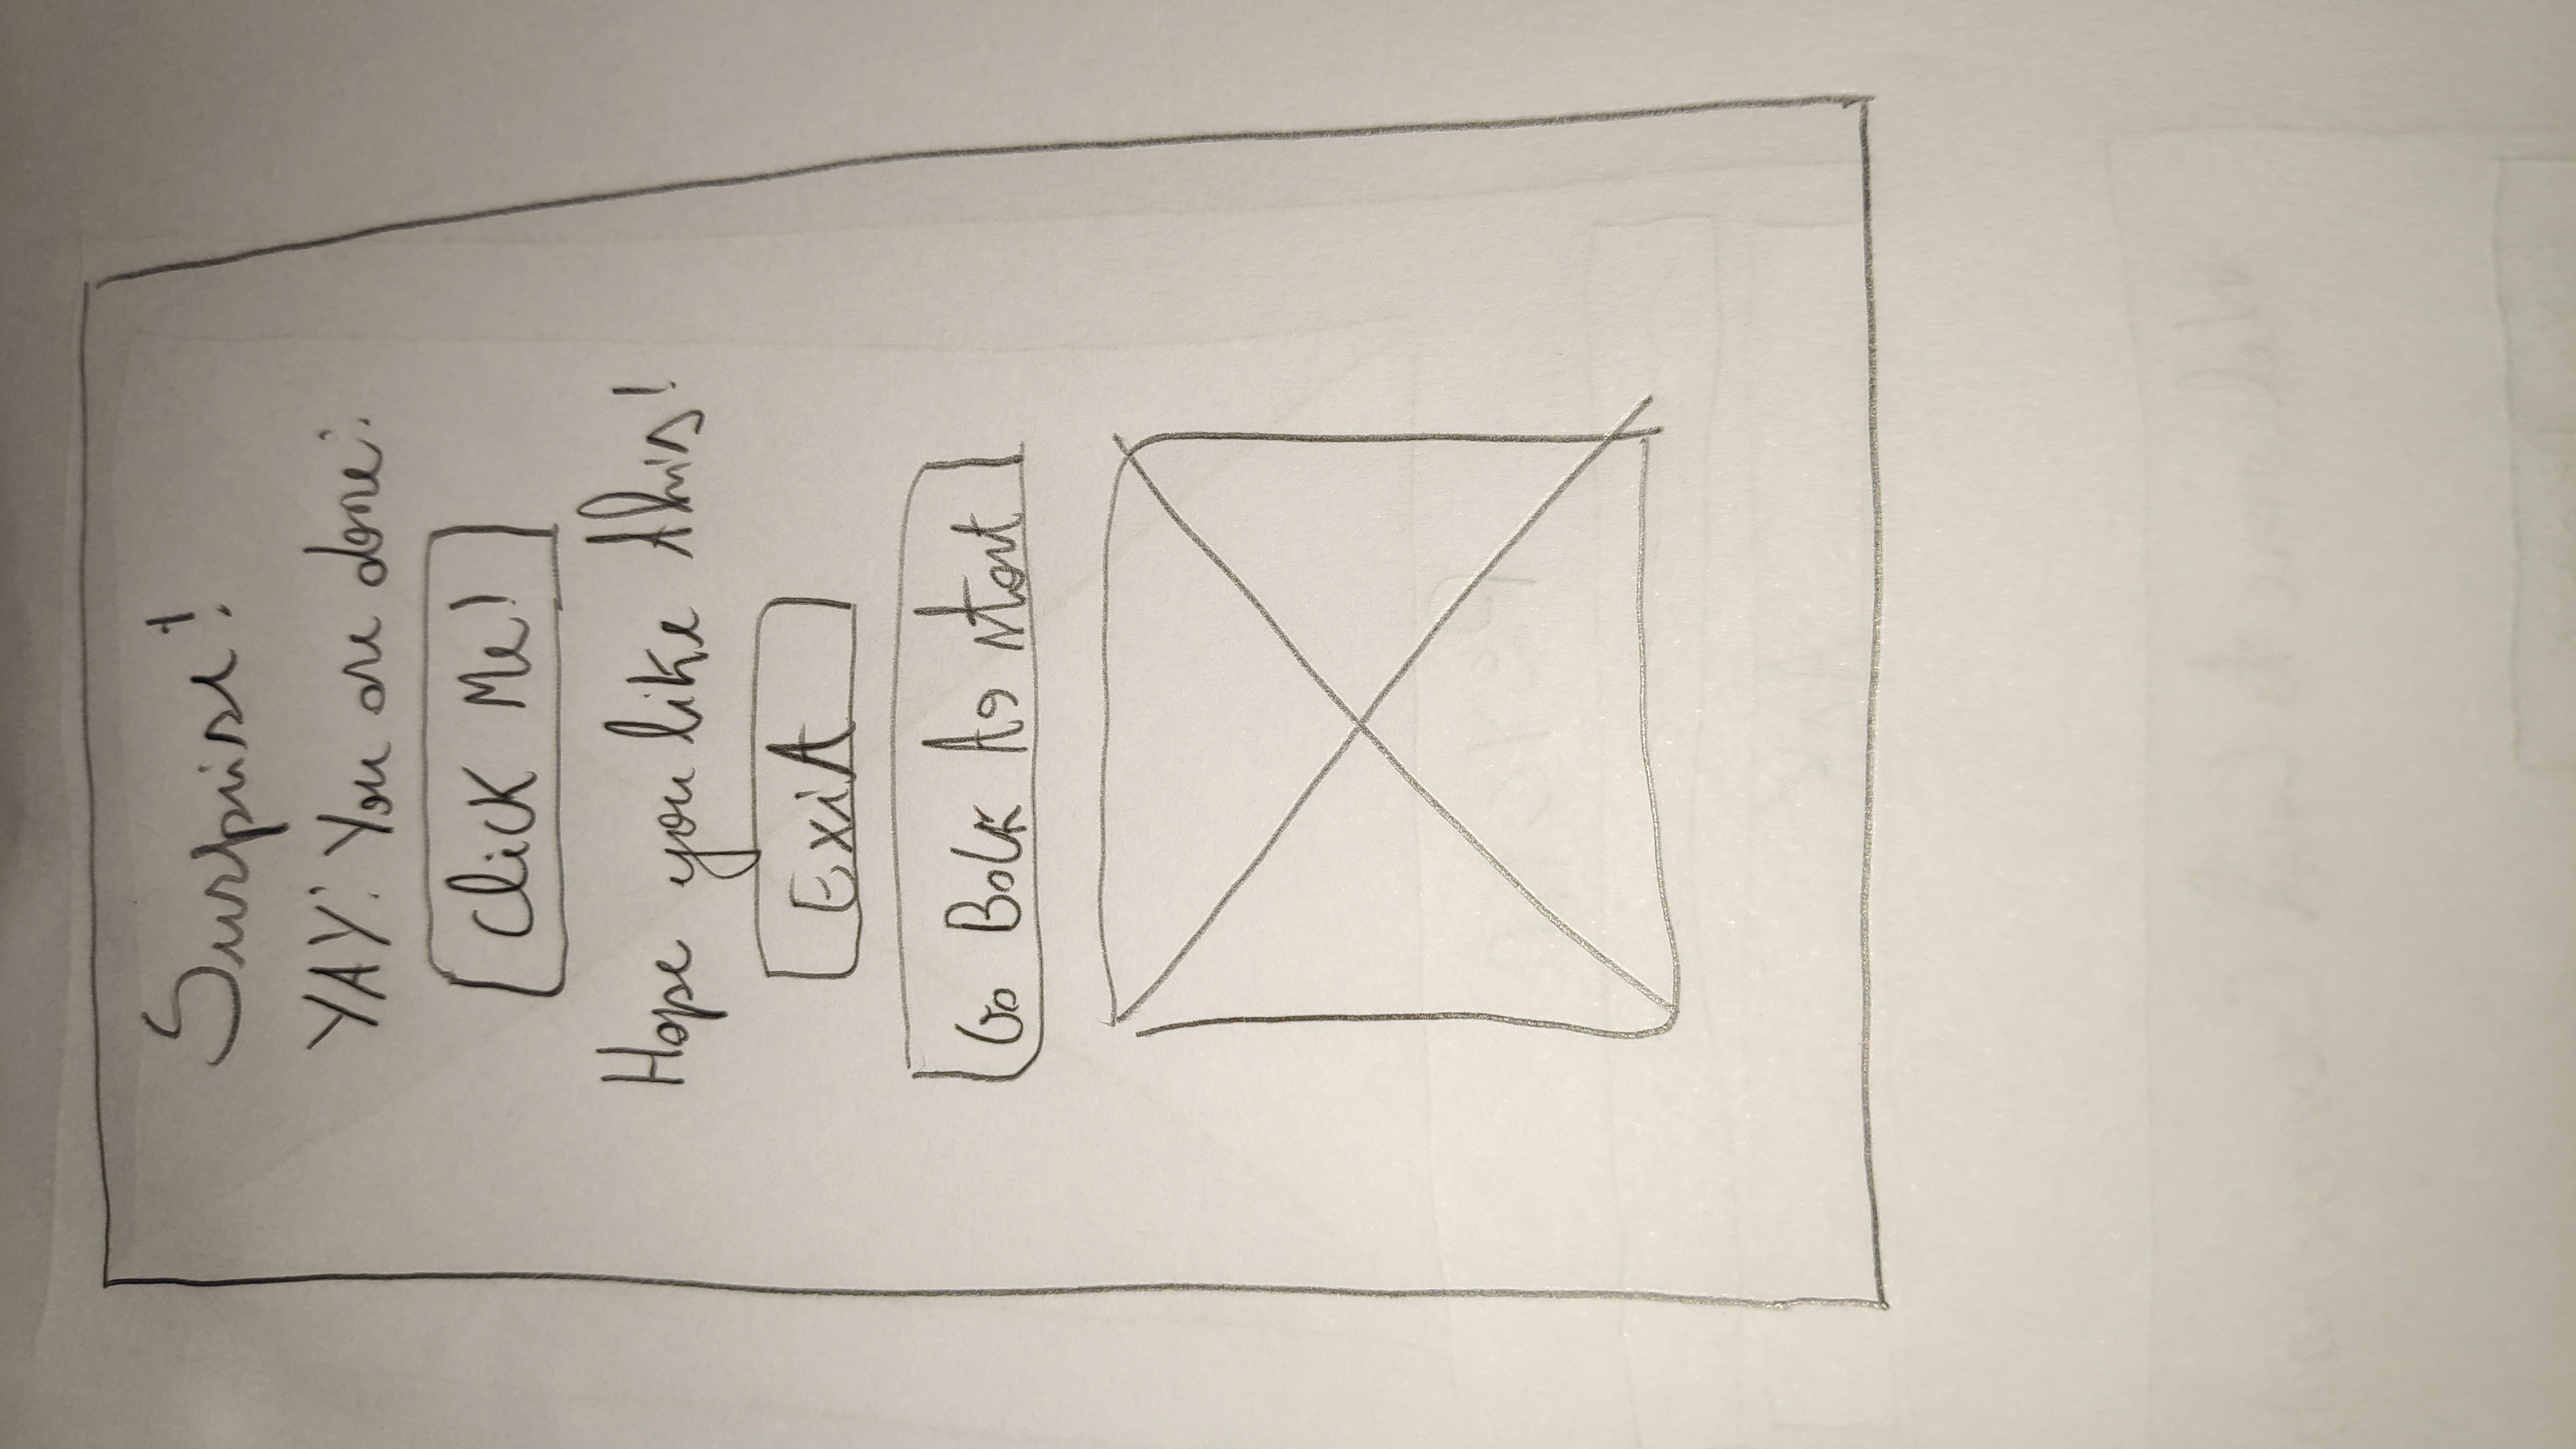 Surprise!
YAY! You are done!
Click Me!
Hope you like this!
Exit
Go Back to start